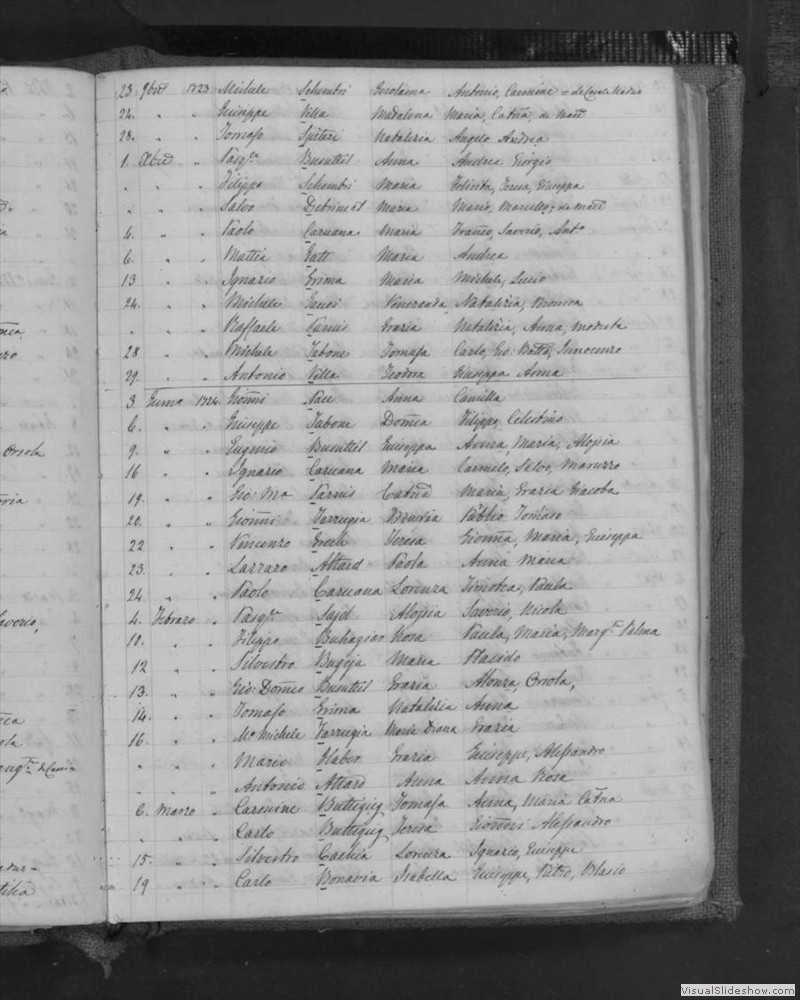 23 9bre 1723 Michele Schembri Girolama Antonio, Carmine
24. " " Giuseppe Villa Madalena Maria, Catna,
28. " " Tomaso Spiteri Natalizia Angelo Andrea
1. Xbre " Pasqle Busuttil Anna Andrea Giorgio
" " " Filippo Schembri Maria Felicita, Teresa, Giuseppa
" " " Salvo Maria Mario,
4. " " Paolo Caruana Maria Saverio, Anto
6. " " Mattia Gatt Maria Andrea
13 " " Ignazio Grima Maria Michele, Lucio
24. " " Michele Gauci Veneranda Natalizia, Monica
" " " Raffaele Parnis Grazia Natalizia, Anna, Modesta
28 " " Michele Tabone Tomasa Carlo, Gio Batta, Innocenzo
29. " " Antonio Villa Teodora Giuseppa Anna
3. Genno 1724. Gionni Pace Anna Camilla
6. " " Giuseppe Tabone Domca Filippo, Celestino
9. " " Eugenio Busuttil Giuseppa Anna, Maria, Aloisia
16 " " Ignazio Caruana Maria Carmelo, Salvo, Maruzzo
19. " " Gio: Ma Parnis Catna Maria, Grazia Giacoba
20. " " Gionni Farrugia Publio Tomaso
22 " " Vincenzo Grech Teresa Gionna, Maria, Giuseppa
23. " " Lazzaro Attard Paola Anna Maria
24 " " Paolo Caruana Lorenza Timotea, Paula
4. Febraro " Pasqle Sajd Aloisia Saverio, Nicola
10. " " Filippo Buhagiar Rosa Paula, Maria, Margta Palma
12 " " Silvestro Bugeja Maria Placido
13. " " Gio: Domco Busuttil Grazia Alonza, Orsola,
14. " " Tomaso Grima Natalizia Anna
16. " " Mo Michele Farrugia Maria Diana Grazia
" " " Mario Haber Grazia Giuseppe, Alessandro
" " " Antonio Attard Anna Anna Rosa
6. Marzo " Carmine Buttigieg Tomasa Anna, Maria Catna
" " " Carlo Buttigieg Teresa Gionni Alessandro
15. " " Silvestro Cachia Lorenza Ignazio, Giuseppe
19 " " Carlo Bonavia Isabella Giuseppe, Pietro, Blasio
Orsola
VisualSlideshow.com